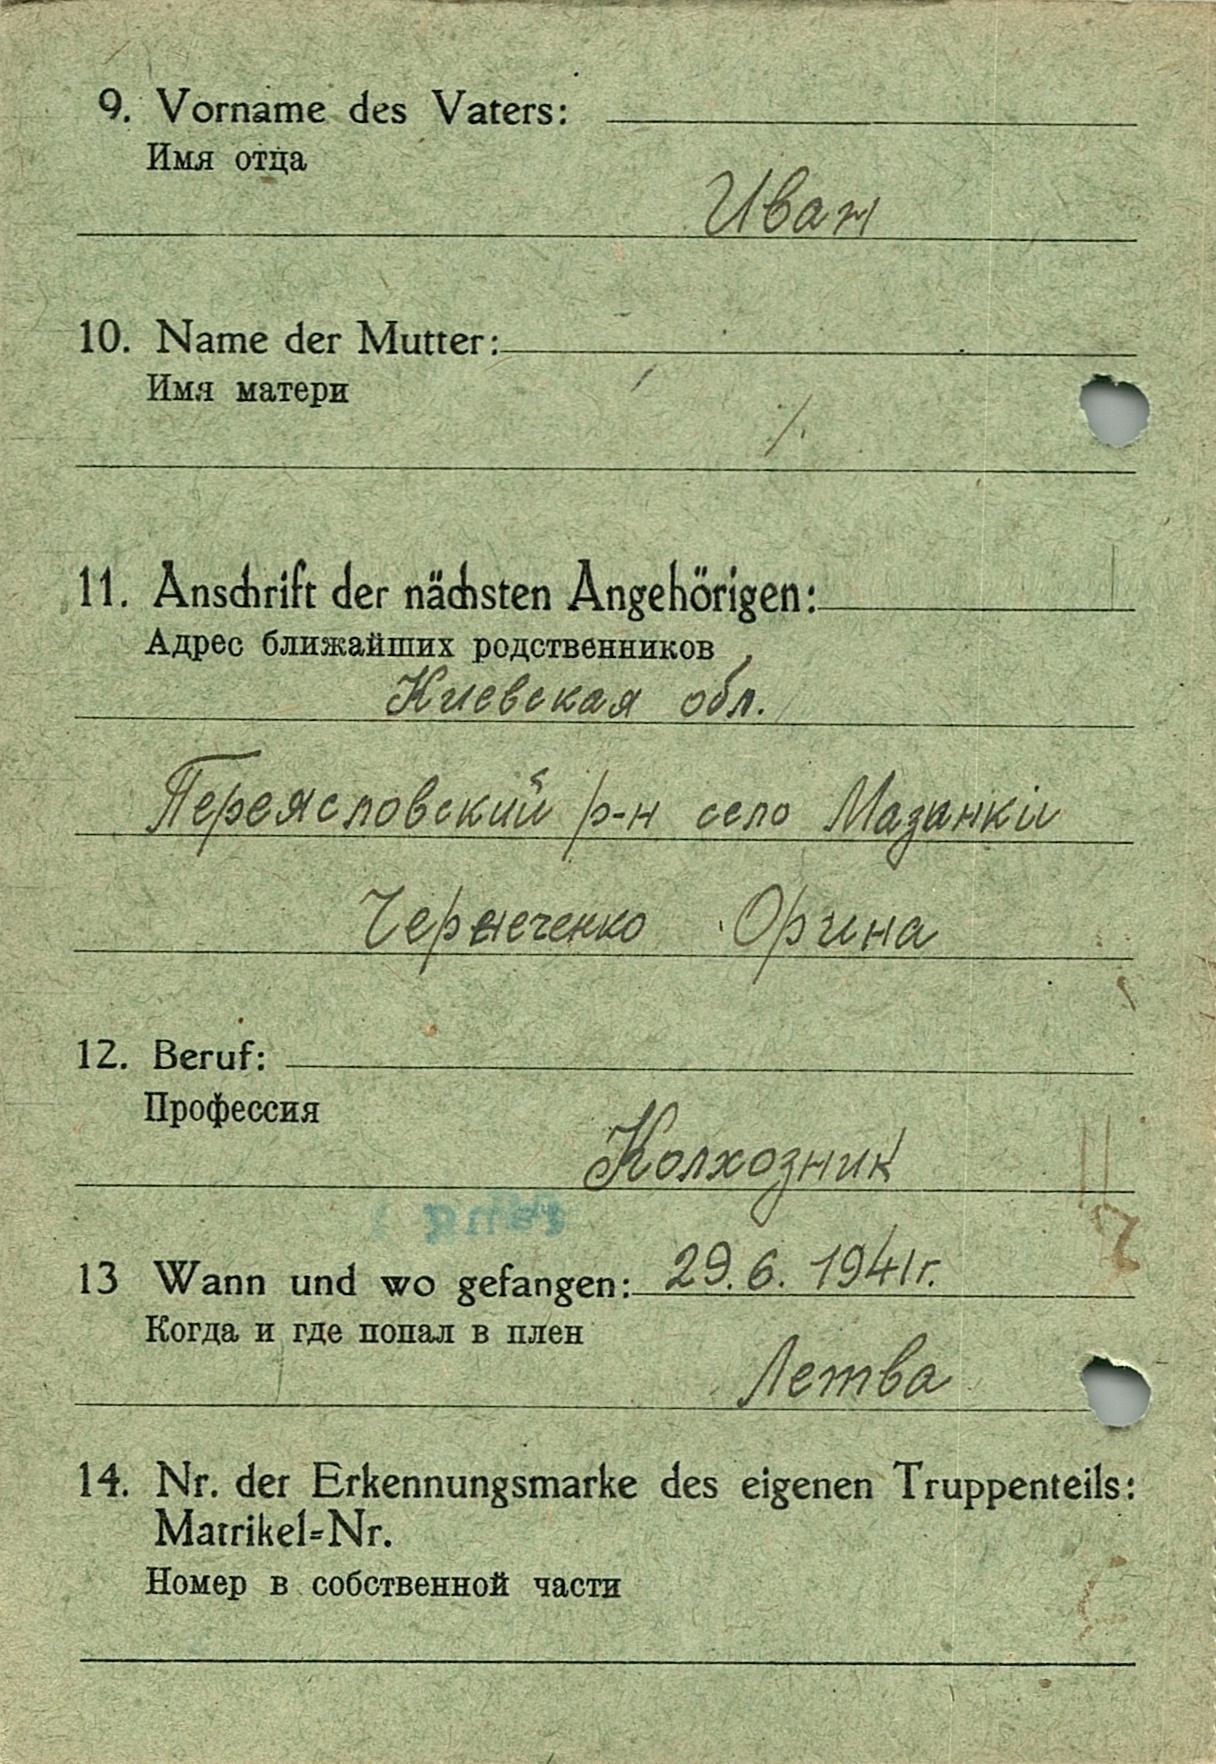 9. Vorname des Vaters:
Имя отца
Иван
10. Name der Mutter:
Имя матери
11. Anschrift der nächsten Angehörigen:
Адрес ближайших родственников
Киевская обл.
Переясловский р-н село Мазанкіи
Орина
12. Beruf:
Профессия
Колхозник
13 Wann und wo gefangen: 29.6.1941г.
Когда и где попал в плен
Летва
14. Nr. der Erkennungsmarke des eigenen Truppenteils:
Matrikel=Nr.
Номер в собственной части